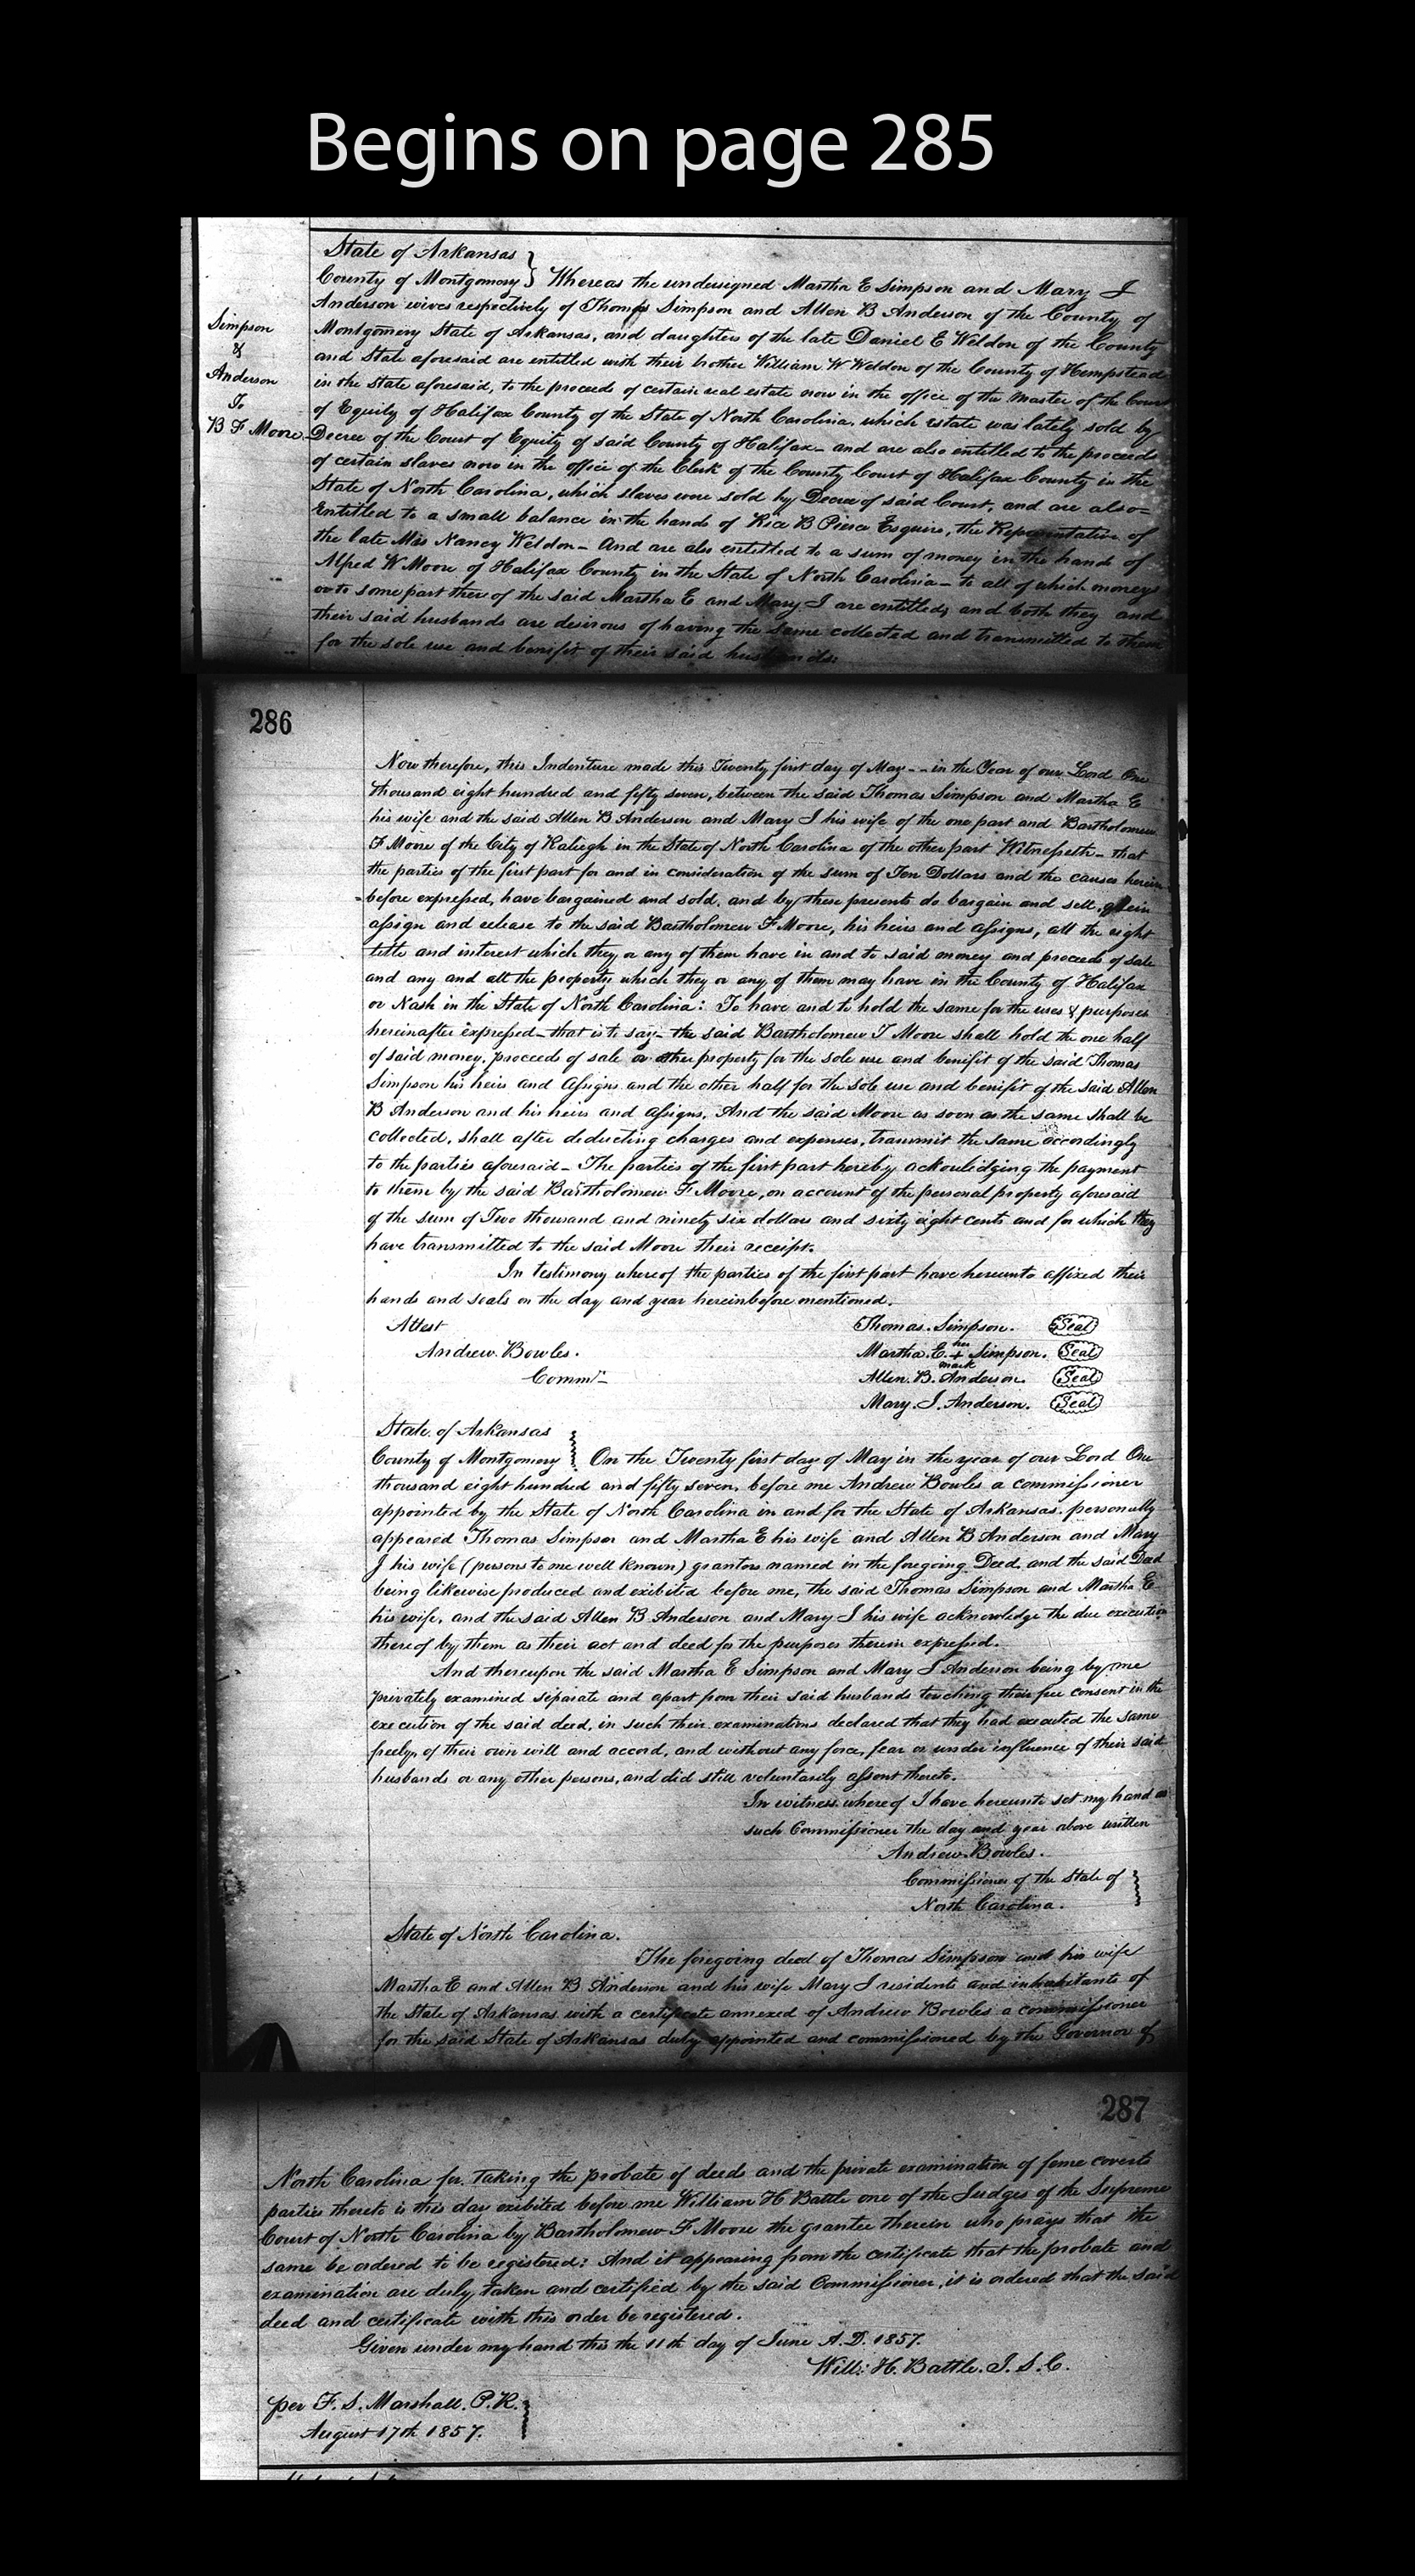 Begins on page 285
State of Arkansas
County of Montgomery } Whereas the undersigned Martha E Simpson and Mary J
Anderson wives respectively of Thomas Simpson and Allen B Anderson of the County of
Montgomery State of Arkansas, and daughters of the late Daniel E Weldon of the County
and State aforesaid are entitled with their brother William W Weldon of the County of Hempstead
in the State aforesaid, to the proceeds of certain real estate now in the office of the Master of the Court
of Equity of Halifax County of the State of North Carolina, which estate was lately sold by
Decree of the Court of Equity of said County of Halifax - and are also entitled to the proceeds
of certain slaves now in the office of the Clerk of the County Court of Halifax County in the
State of North Carolina, which slaves were sold by Decree of said Court, and are also=
Entitled to a small balance in the hands of Rice B Pierce Esquire, the Representative of
the late Mis Nancy Weldon - And are also entitled to a sum of money in the hands of
Alfred W Moore of Halifax County in the State of North Carolina - to all of which moneys
or to some part there of the said Martha E and Mary J are entitled, and both they and
their said husbands are desirous of having the same collected and transmitted to them
for the sole use and benifit of their said husbands:
Simpson
&
Anderson
To
B F Moore
286
Now therefore, this Indenture made this Twenty first day of May - - in the Year of our Lord One
thousand eight hundred and fifty seven, between the said Thomas Simpson and Martha E
his wife and the said Allen B Anderson and Mary J his wife of the one part and Bartholomew
F Moore of the City of Raleigh in the State of North Carolina of the other part Witnesseth - that
the parties of the first part for and in consideration of the sum of Ten Dollars and the causes herein
before expressed, have bargained and sold, and by these presents do bargain and sell,
assign and release to the said Bartholomew F Moore, his heirs and assigns, all the right
title and interest which they or any of them have in and to said money and proceeds of sale
and any and all the property which they or any of them may have in the County of Halifax
or Nash in the State of North Carolina: To have and to hold the same for the uses & purposes
hereinafter expressed - that is to say - the said Bartholomew F Moore shall hold the one half
of said money, proceeds of sale or other property for the sole use and benifit of the said Thomas
Simpson his heirs and assigns and the other half for the sole use and benifit of the said Allen
B Anderson and his heirs and assigns. And the said Moore as soon as the same shall be
collected, shall after deducting charges and expenses, transmit the same accordingly
to the parties aforesaid - The parties of the first part hereby acknowledging the payment
to them by the said Bartholomew F Moore, on account of the personal property aforesaid
of the sum of Two thousand and ninety six dollars and sixty eight cents and for which they
have transmitted to the said Moore their receipt.
In testimony whereof the parties of the first part have hereunto affixed their
hands and seals on the day and year hereinbefore mentioned.
Attest Thomas. Simpson. Seal
Andrew. Bowles. Martha. E. her + mark Simpson. Seal
Commr Allen. B. Anderson. Seal
Mary. J. Anderson. Seal
State of Arkansas
County of Montgomery } On the Twenty first day of May in the year of our Lord One
thousand eight hundred and fifty seven, before me Andrew Bowles a commissioner
appointed by the State of North Carolina in and for the State of Arkansas. personally
appeared Thomas Simpson and Martha E his wife and Allen B Anderson and Mary
J his wife (persons to me well known) grantors named in the foregoing Deed, and the said Deed
being likewise produced and exibited before me, the said Thomas Simpson and Martha E
his wife, and the said Allen B Anderson and Mary J his wife acknowledge the due execution
thereof by them as their act and deed for the purposes therein expressed.
And thereupon the said Martha E Simpson and Mary J Anderson being by me
privately examined separate and apart from their said husbands touching their free consent in the
execution of the said deed, in such their examinations declared that they had executed the same
freely, of their own will and accord, and without any force, fear or under influence of their said
husbands or any other persons, and did still voluntarily assent thereto.
In witness whereof I have hereunto set my hand as
such Commissioner the day and year above written
Andrew Bowles.
Commissioner of the State of
North Carolina.
State of North Carolina.
The foregoing deed of Thomas Simpson and his wife
Martha E and Allen B Anderson and his wife Mary J residents and inhabitants of
the State of Arkansas with a certificate annexed of Andrew Bowles a commissioner
for the said State of Arkansas duly appointed and commissioned by the Governor of
287
North Carolina for taking the probate of deeds and the private examination of feme coverts
parties thereto is this day exibited before me William H Battle one of the Judges of the Supreme
Court of North Carolina by Bartholomew F Moore the grantee therein who prays that the
same be ordered to be registered: And it appearing from the certificate that the probate and
examination are duly taken and certified by the said Commissioner, it is ordered that the said
deed and certificate with this order be registered.
Given under my hand this the 11th day of June A.D. 1857.
Will: H. Battle. J. S. C.
per F. S. Marshall. P. R.
August 17th 1857.